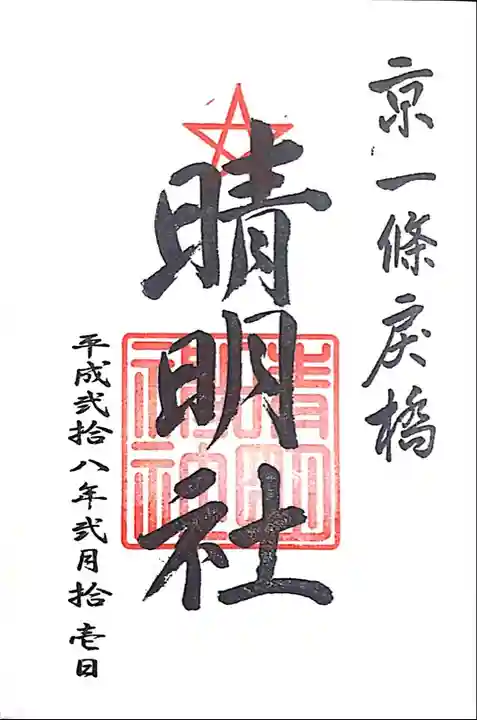 京一條戻橋
晴明社
晴明神社
平成弐拾八年弐月拾壱日